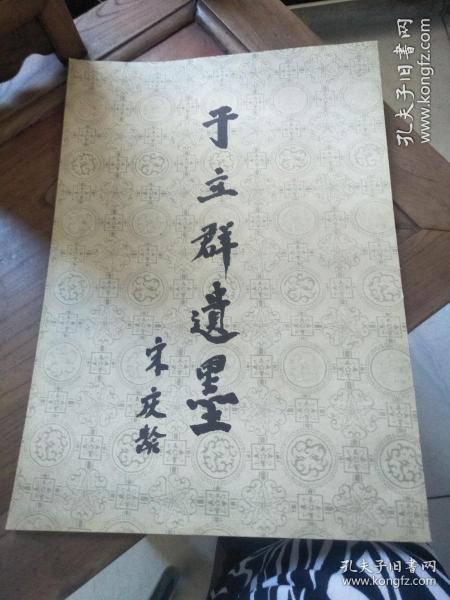 于立群遺墨
宋庆龄
孔夫子旧书网
www.kongfz.com
孔夫子旧书网
www.kongfz.com